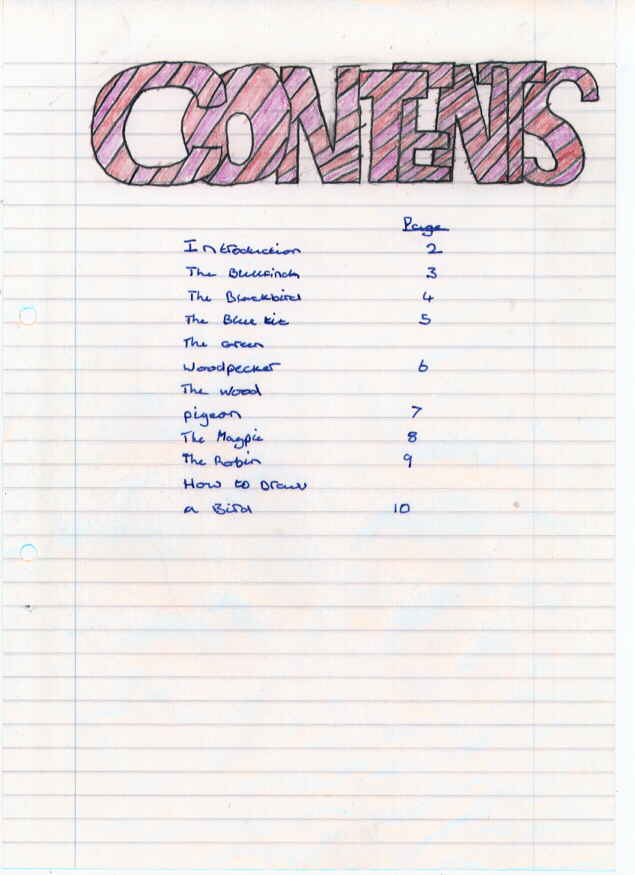 CONTENTS
Page
Introduction 2
The Bullfinch 3
The Blackbird 4
The Blue tit 5
The Green
Woodpecker 6
The Wood
pigeon 7
The Magpie 8
The Robin 9
How to Draw
a Bird 10